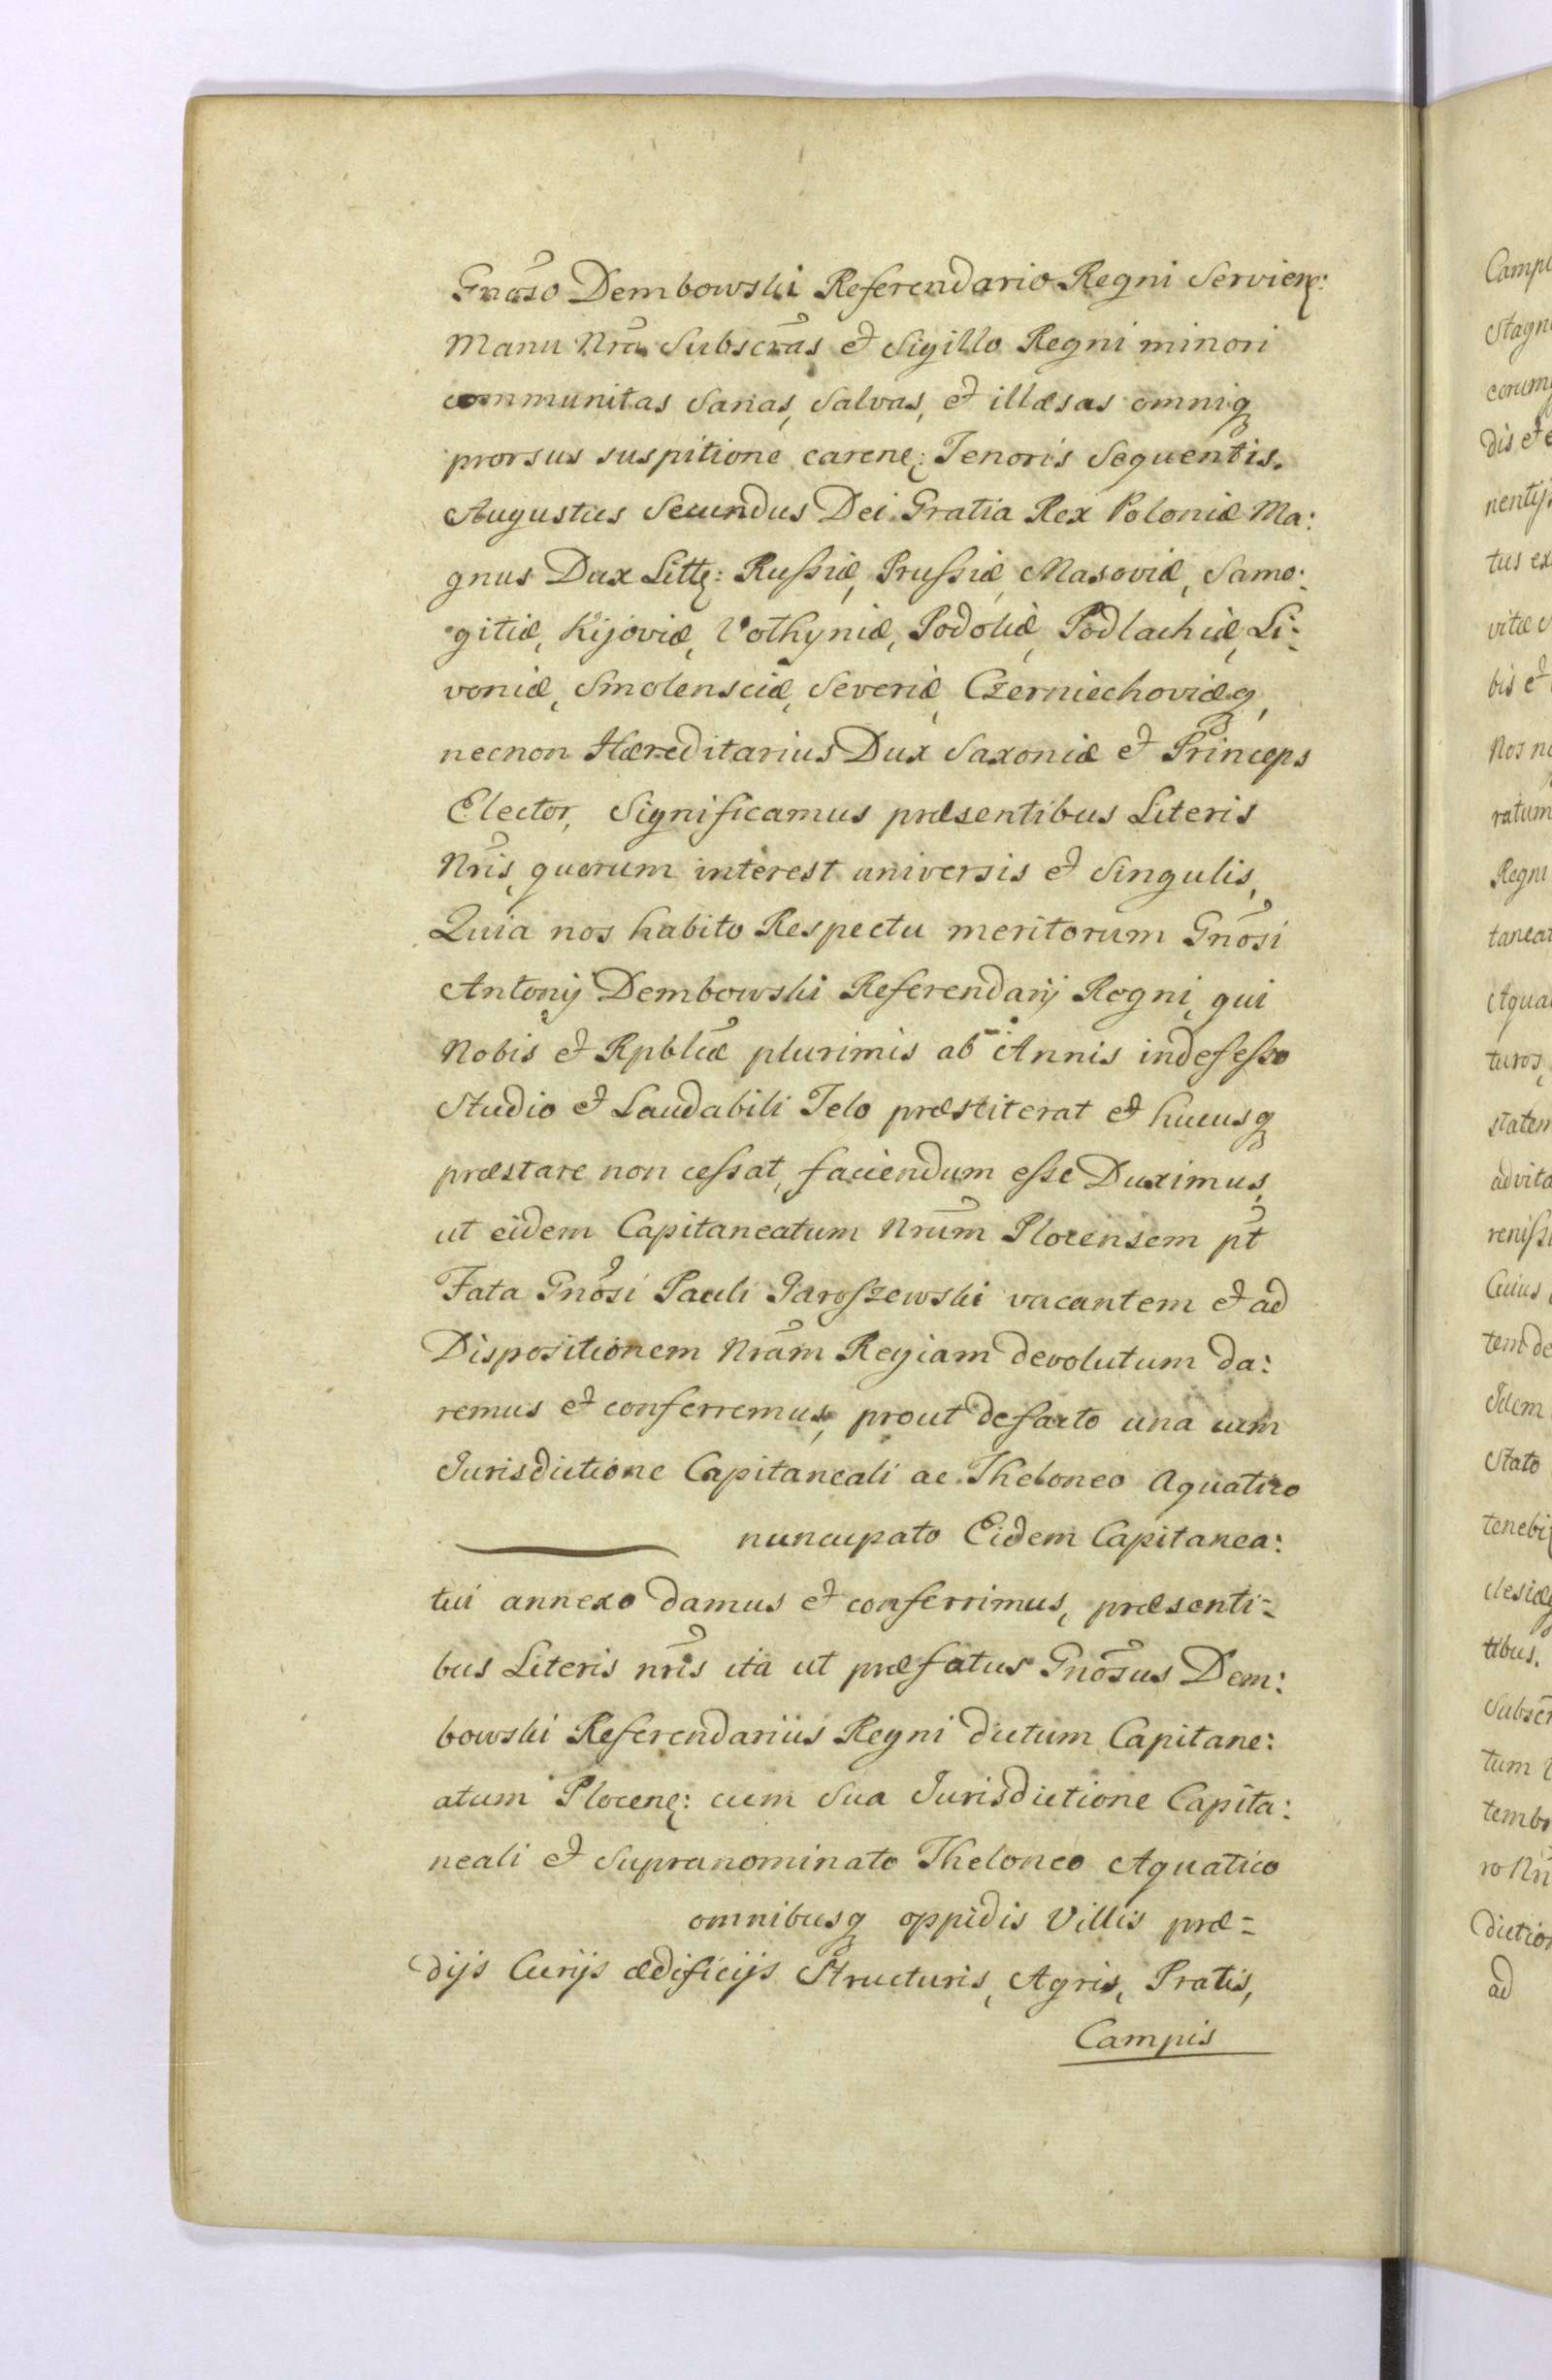 Gnõso Dembowski Referendario Regni Servien:
Manu Nrã Subscrãs et Sigillo Regni minori
communitas Sanas, Salvas, et illæsas omniq
prorsus suspitione caren: Tenoris Sequentis.
Augustus Secundus Dei Gratia Rex Poloniæ Ma:
gnus Dux Litt: Rußiæ, Prußiæ, Masoviæ, Samo:
gitiæ, Kijoviæ, Volhyniæ, Podoliæ, Podlachiæ, Li:
voniæ, Smolensciæ, Severiæ, Czerniechoviæq,
necnon Hæreditarius Dux Saxoniæ et Princeps
Elector, Significamus præsentibus Literis
Nrĩs, quorum interest universis et Singulis,
Quia nos habito Respectu meritorum Gnõsi
Antonij Dembowski Referendarij Regni, qui
Nobis et Rpblcæ plurimis ab Annis indefeßo
Studio et Laudabili Telo præstiterat et hucusq
præstare non ceßat, faciendum eße Duximus,
ut eidem Capitaneatum Nrũm Plocensem pt̃
Fata Gnõsi Pauli Jaroszewski vacantem et ad
Dispositionem Nrãm Regiam devolutum da:
remus et conferremus, prout defacto una cum
Jurisdictione Capitaneali ac Theloneo Aquatico
nuncupato Eidem Capitanea:
tui annexo damus et conferrimus, præsenti=
bus Literis nrĩs ita ut præfatus Gnõsus Dem:
bowski Referendarius Regni dictum Capitane:
atum Plocen: cum Sua Jurisdictione Capita:
neali et Supranominato Theloneo Aquatico
omnibusq oppidis Villis præ=
dijs Curijs ædificijs Structuris, Agris, Pratis,
Campis